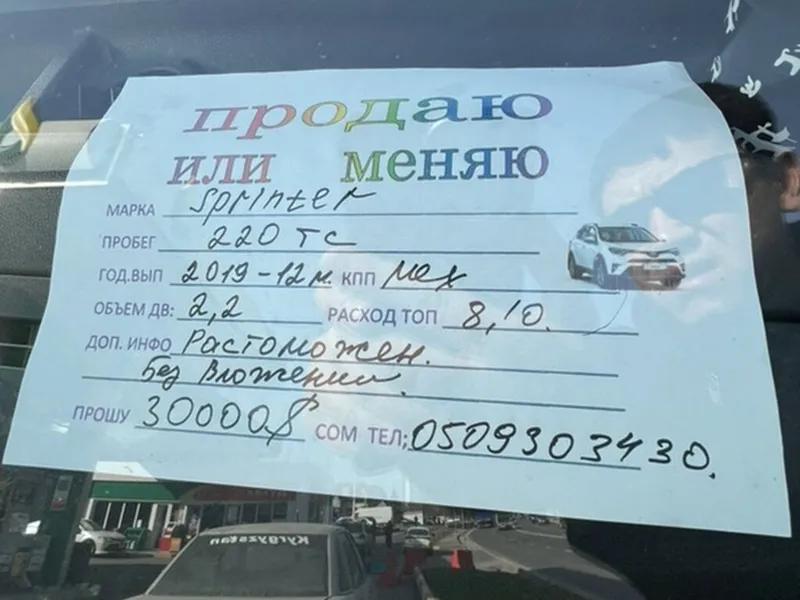 продаю
или меняю
МАРКА Sprinter
ПРОБЕГ 220 тс
ГОД.ВЫП 2019-12м. КПП Мех
ОБЪЕМ ДВ: 2,2 РАСХОД ТОП 8,10.
ДОП. ИНФО Растоможен.
Без Вложений.
ПРОШУ 30000$ СОМ ТЕЛ; 0509303430.
Kyrgyzstan